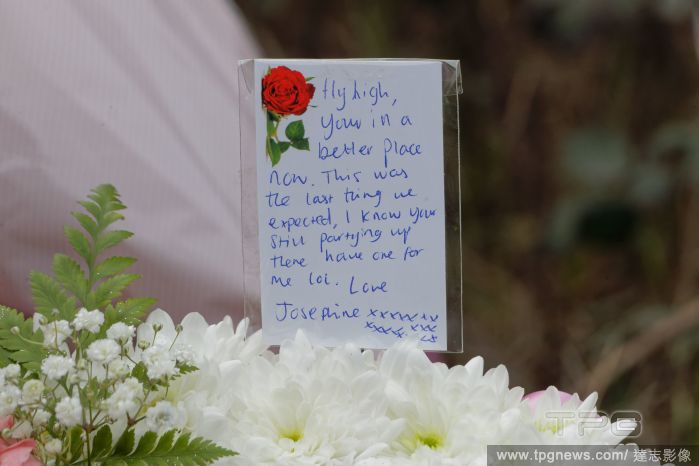 fly high,
your in a
better place
now. This was
the last thing we
expected, I know your
still partying up
there have one for
me lol. Love
Josephine xxxxxxx
xxxxx xxx
TPG
www.tpgnews.com/ 達志影像